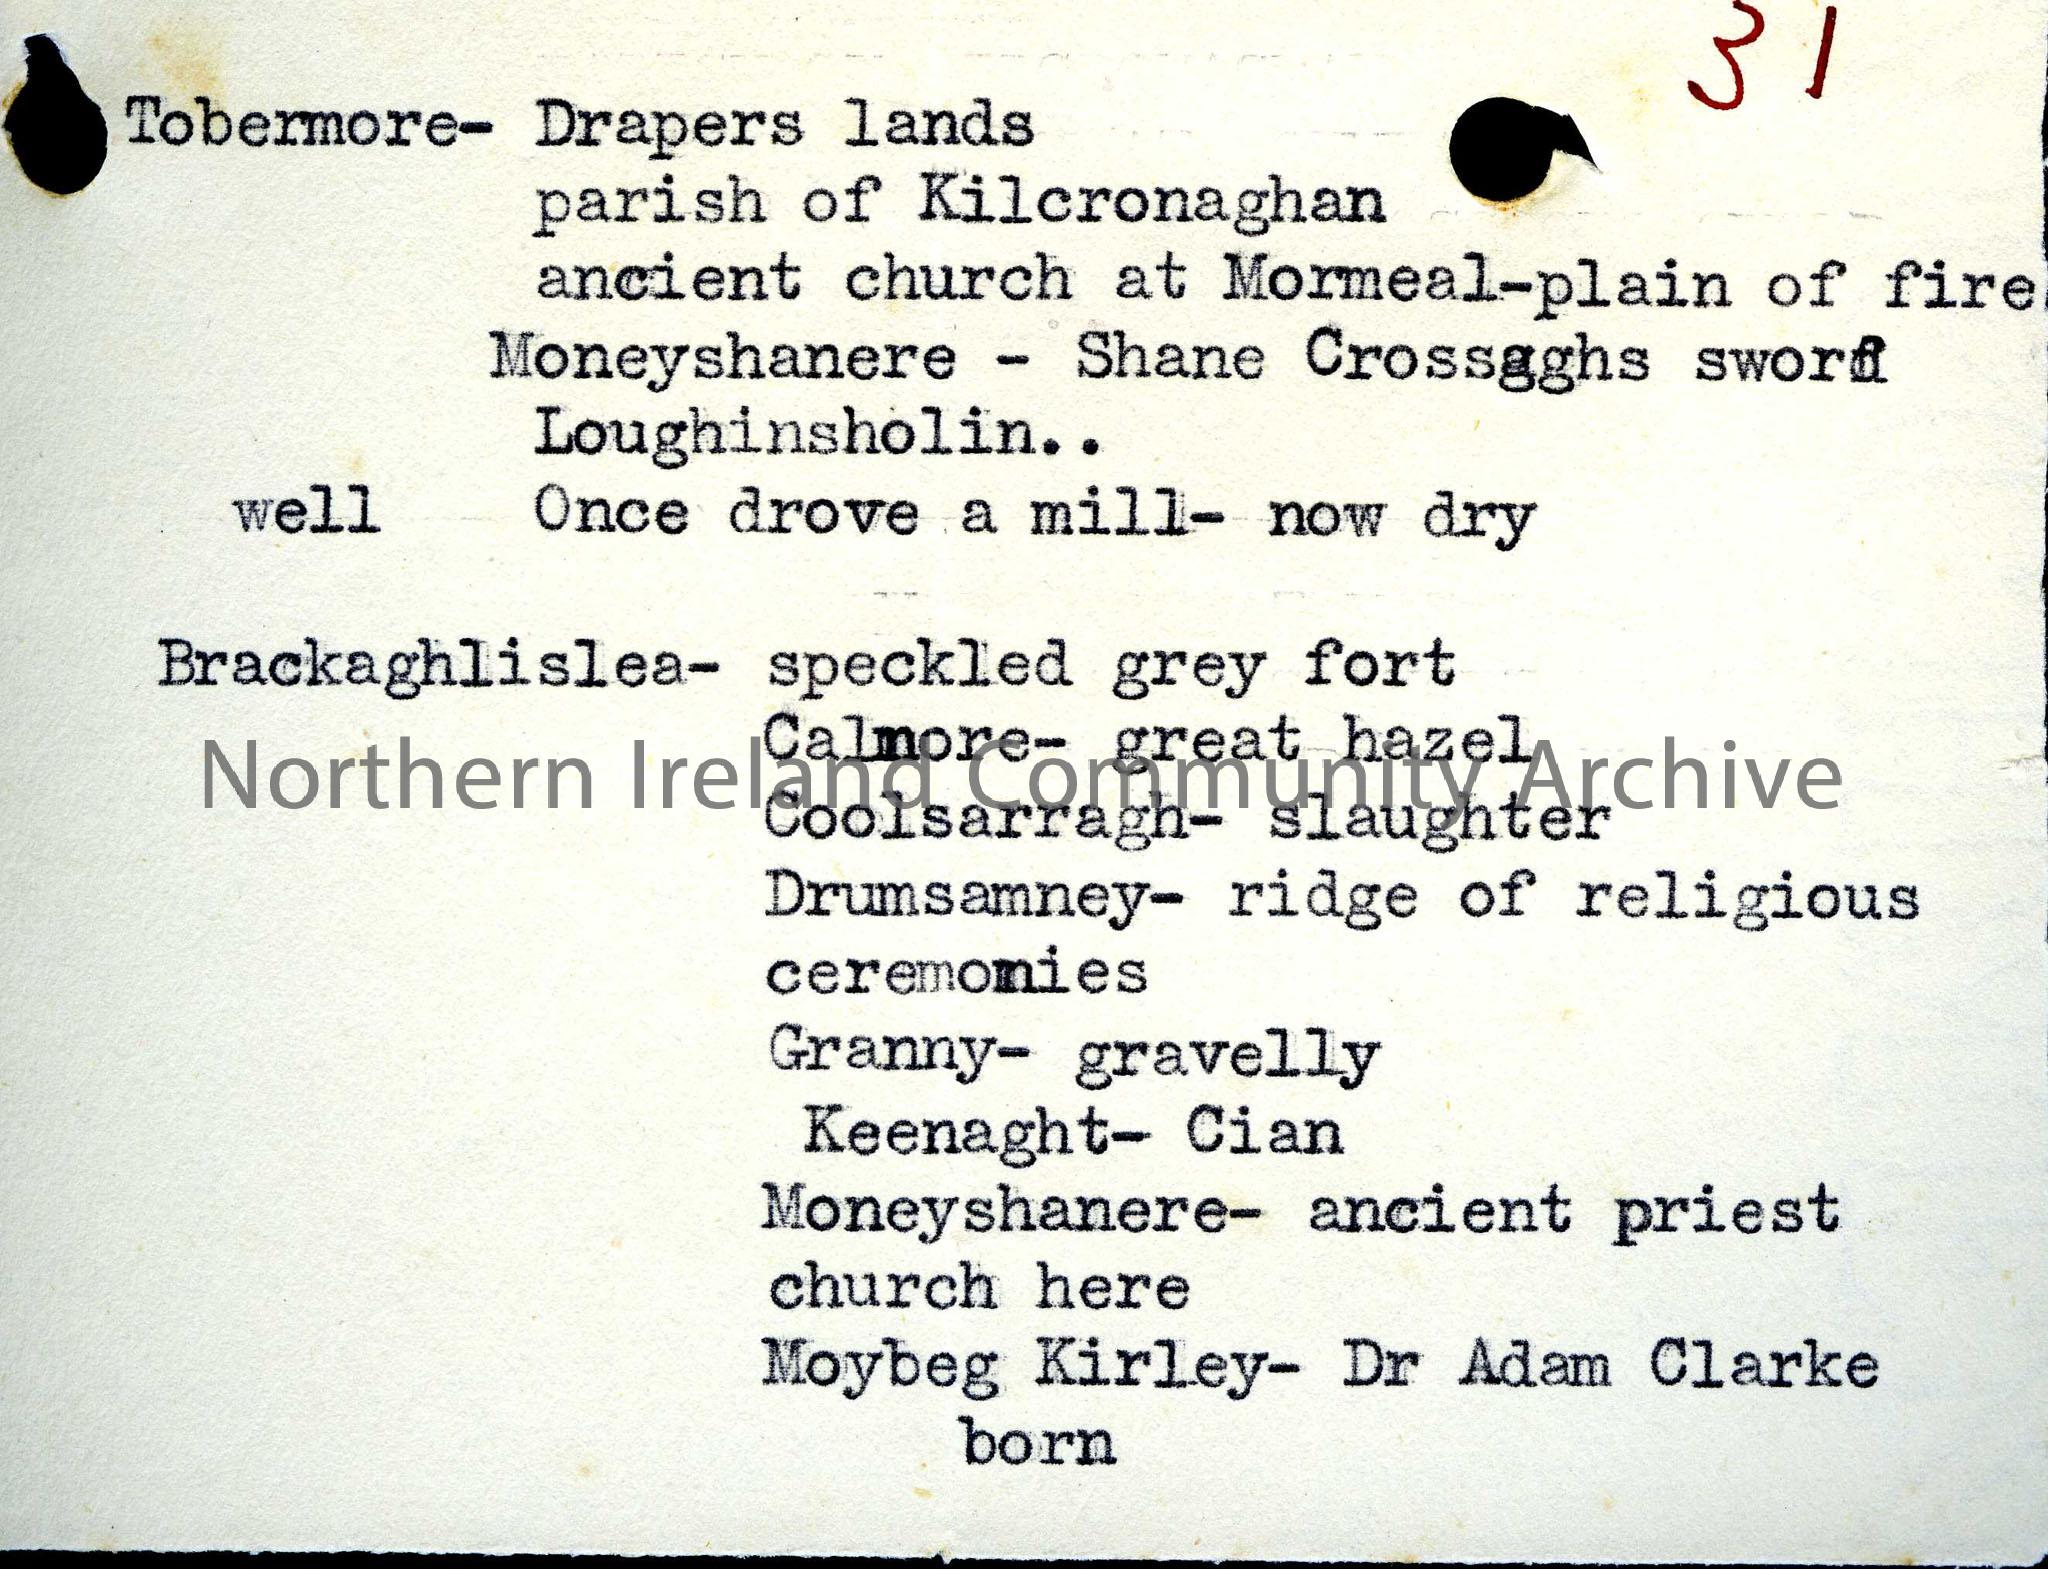 31
Tobermore- Drapers lands
parish of Kilcronaghan
ancient church at Mormeal-plain of fire
Moneyshanere - Shane Crossaghs sword
Loughinsholin..
well Once drove a mill- now dry
Brackaghlislea- speckled grey fort
Calmore- great hazel
Northern Ireland Community Archive
Coolsarragh- slaughter
Drumsamney- ridge of religious
ceremonies
Granny- gravelly
Keenaght- Cian
Moneyshanere- ancient priest
church here
Moybeg Kirley- Dr Adam Clarke
born